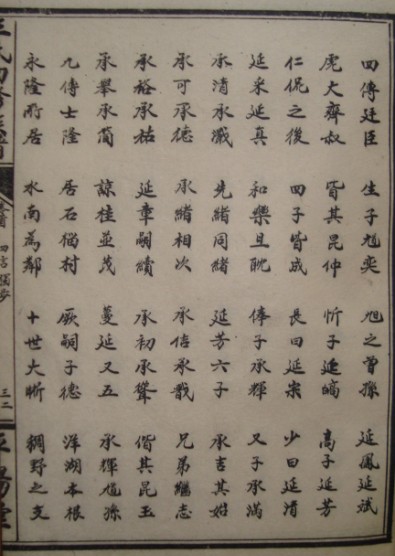 四傳廷臣 生子旭奕 旭之曾孫 延鳳延斌
虎大齊叔 皆其昆仲 忻子延 高子延芳
仁侃之後 四子皆成 長曰延宗 少曰延清
延采延真 和樂且耽 俸子承輝 又子承滿
承清承瓚 先緒同緒 延芳六子 承吉其始
承可承德 承緒相次 承信承戩 兄弟繼志
承裕承祐 延章嗣續 承初承聲 偕其昆玉
承舉承簡 諒桂並茂 蔓延又五 承輝旭孫
九傳士隆 居石猫村 厥嗣子德 洋湖本根
永隆所居 水南為鄰 十世大昕 稠野之支
四言獨步
三二